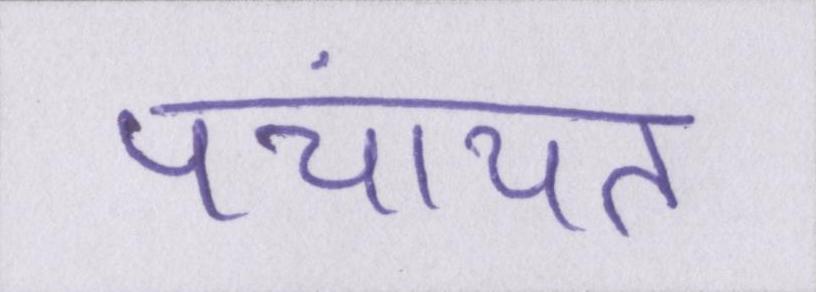 पचांयत